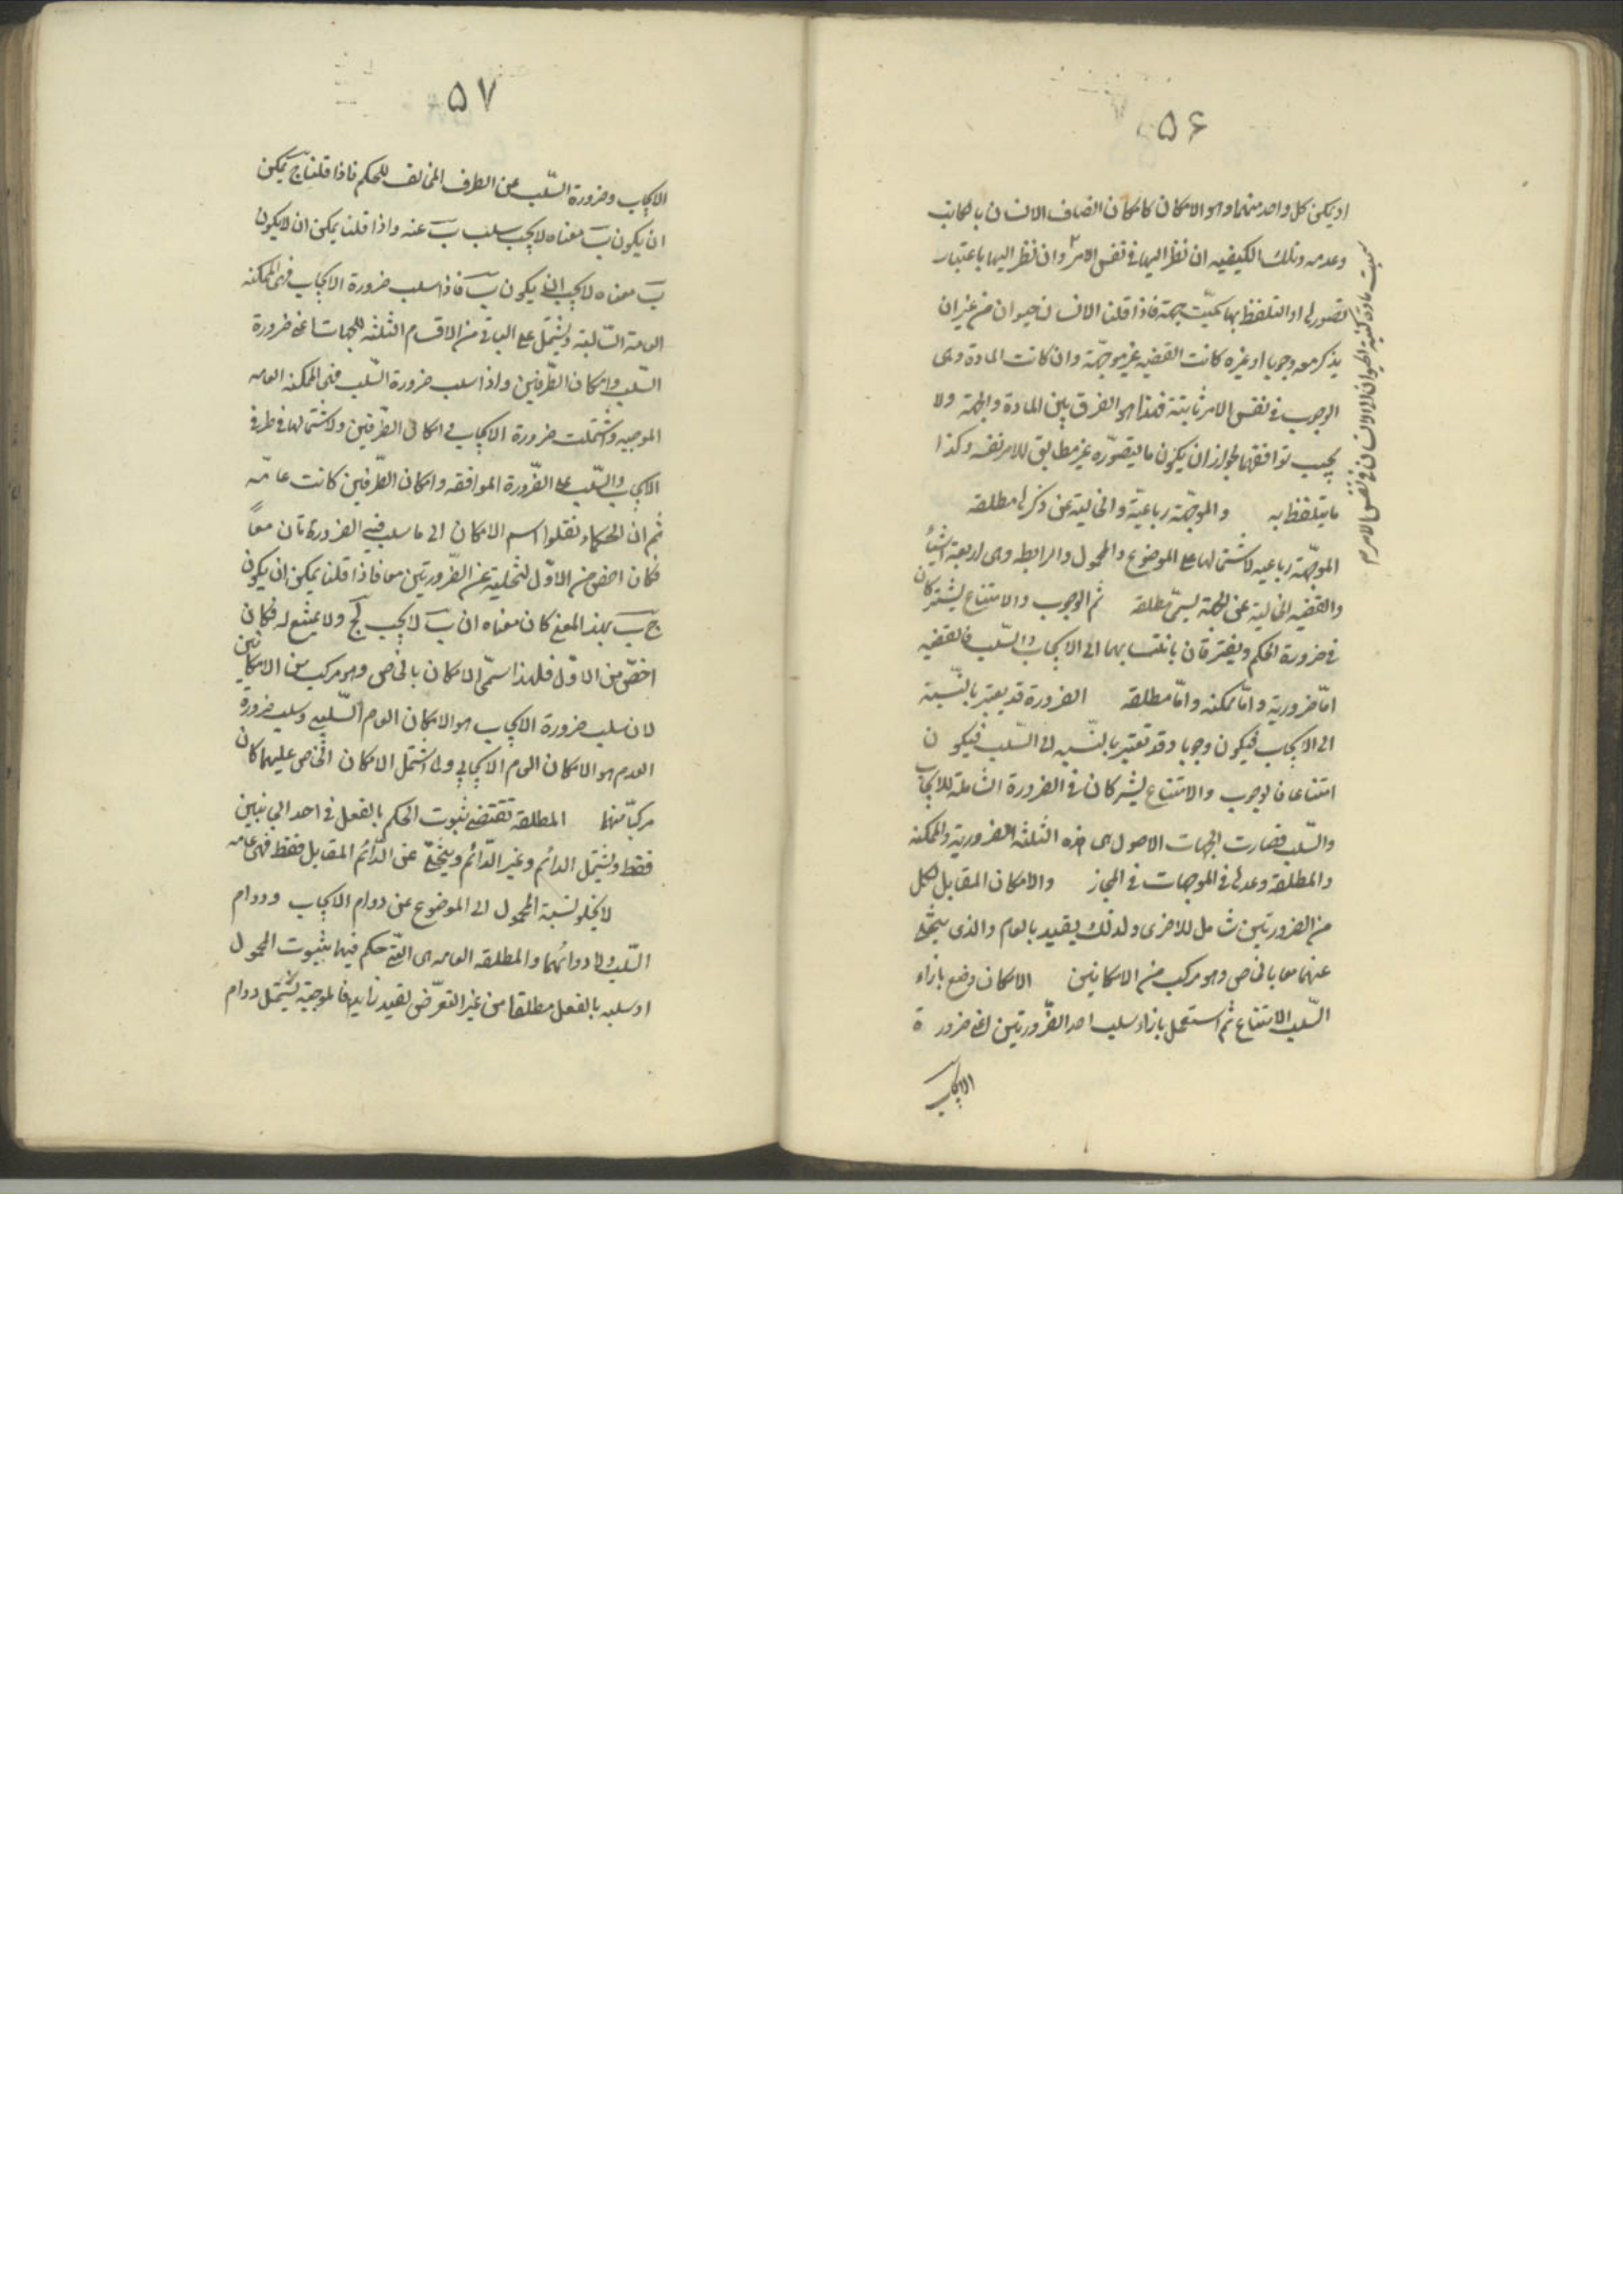 ۵۶
او يمكن كل واحد منهما وهو الامكان كامكان اتصاف الانسان بالكتابة
وعدمه وتلك الكيفيه ان نظر اليها فى نفس الامر وان نظر اليها باعتبار
سميت مادة كنسبة الحيوان الى الانسان فى نفس الامر
تصورها او التلفظ بها سميّت جهة فاذا قلنا الانسان حيوان من غير ان
يذكر معه وجوبا او غيره كانت القضيه غير موجّهة وان كانت المادة وهى
الوجوب فى نفس الامر ثابتة فهذا هو الفرق بين المادة والجهة ولا
يجب توافقهما لجواز ان يكون ما يتصوّره غير مطابق للامر نفسه وكذا
ما يتلفظ به والموجّهة رباعيّة والخالية عن ذكرها مطلقه
الموجّهة رباعيه لاشتمالها على الموضوع والمحمول والرابطه وهى اربعة اشياء
والقضيه الخالية عن الجهة يسمّى مطلقة ثم الوجوب والامتناع يشتركان
فى ضرورة الحكم ويفترقان بانتسابهما الى الايجاب والسّلب فالقضيه
امّا ضرورية وامّا ممكنه وامّا مطلقه الضرورة قد يعتبر بالنّسبة
الى الايجاب فيكون وجوبا وقد تعتبر بالنّسبه الى السّلب فيكون
امتناعا فالوجوب والامتناع يشتركان فى الضرورة الشاملة للايجاب
والسّلب فصارت الجهات الاصول هى هذه الثلثة الضرورية والممكنه
والمطلقة وعدها فى الموجهات فى المجاز والامكان المقابل لكل
من الضرورتين شامل للاخرى ولذلك يقيد بالعام والذى يتخلّى
عنهما معا بالخاص وهو مركب من الامكانين الامكان وضع بازاء
السّلب الامتناع ثم استعمل بازاء سلب احد الضّرورتين اعنى ضرورة
الايجاب
۵۷
الايجاب وضرورة السّلب عن الطرف المخالف للحكم فاذا قلنا ج يمكن
ان يكون ب معناه لا يجب سلب ب عنه واذا قلنا يمكن ان لا يكون
ب معناه لا يجب ان يكون ب فاذا سلب ضرورة الايجاب فهى الممكنه
العامة السّالبة ويشتمل على الباقى من الاقسام الثلثه للجهات اعنى ضرورة
السّلب وامكان الطّرفين واذا سلب ضرورة السّلب فهى الممكنه العامه
الموجبه واشتملت ضرورة الايجاب وامكان الطّرفين ولاشتمالها فى طرفى
الايجاب والسّلب على الضّرورة الموافقه وامكان الطّرفين كانت عامّه
ثم ان الحكماء نقلوا اسم الامكان الى ما سلب فيه الضرورتان معاً
فكان اخصّ من الاوّل لتخليته عن الضّرورتين معا فاذا قلنا يمكن ان يكون
ج ب بهذا المعنى كان معناه ان ب لا يجب لج ولا يمتنع له فكان
اخصّ من الاوّل فلهذا سمّى الامكان بالخاص وهو مركب من الامكانين
لان سلب ضرورة الايجاب هو الامكان العام السّلبى وسلب ضرورة
العدم هو الامكان العام الايجابى ولما اشتمل الامكان الخاص عليهما كان
مركبّا منهما المطلقه تقتضى ثبوت الحكم بالفعل فى احد الجانبين
فقط ويشتمل الدائم وغير الدّائم ويتخلّى عن الدّائم المقابل فقط فهى عامه
لا يخلو نسبة المحمول الى الموضوع عن دوام الايجاب ودوام
السّلب ولا دوامهما والمطلقه العامه هى الّتى حكم فيها بثبوت المحمول
او سلبه بالفعل مطلقا من غير التعرّض لقيد زايد فالموجبة يشتمل دوام